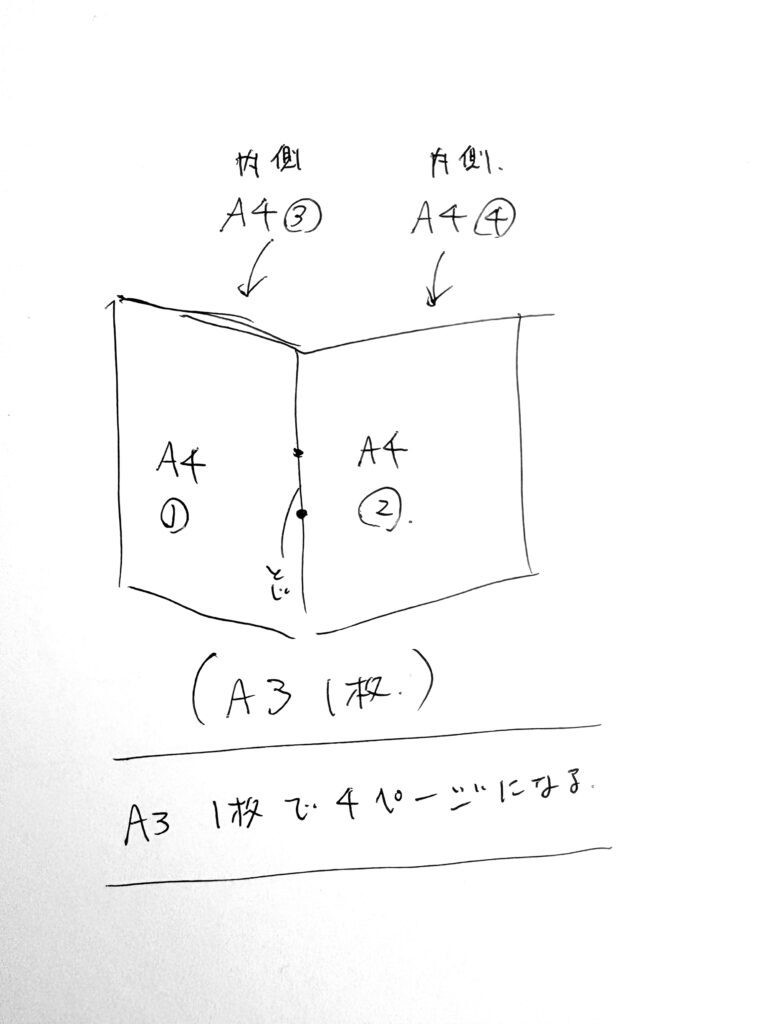 内側 内側.
A4③ A4④
A4 A4
① ②.
とじ
(A3 1枚.)
A3 1枚で4ページになる.